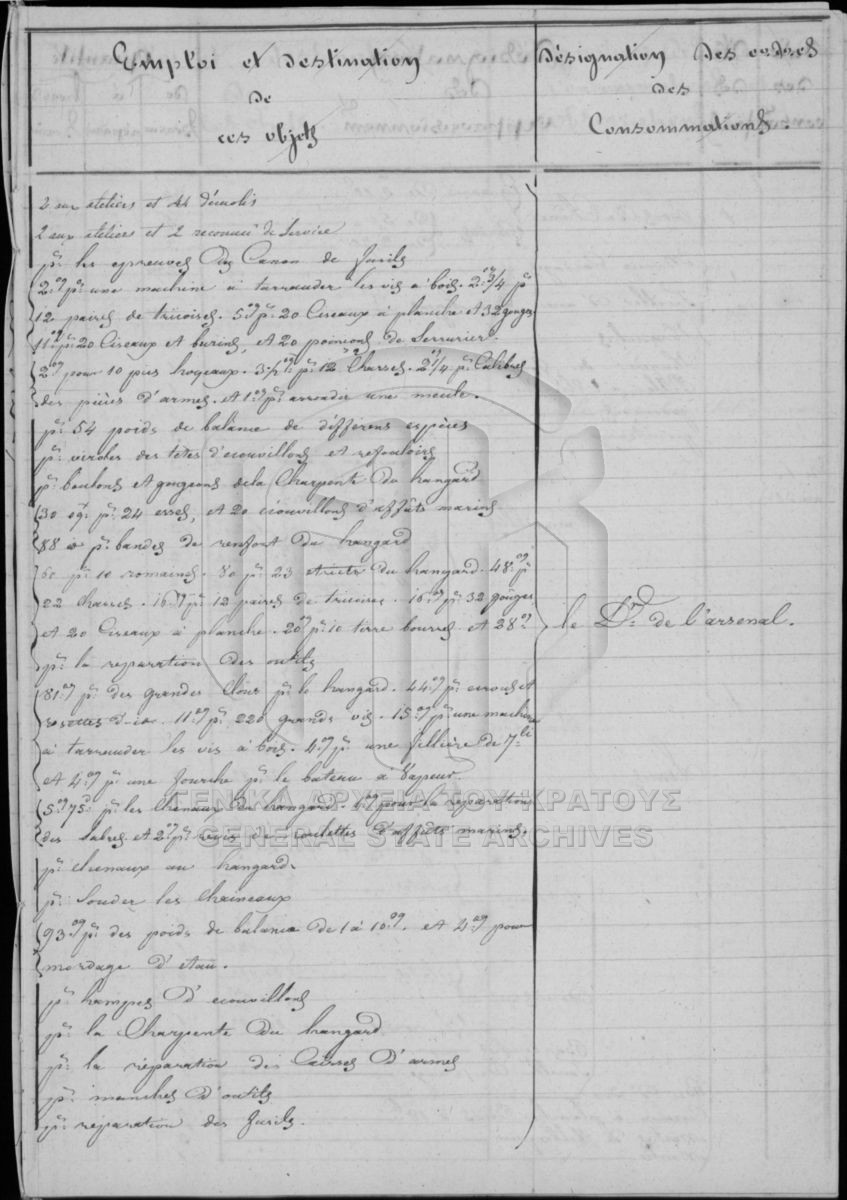 Emploi et destination
de
ces objets
Désignation des ordres
des
Consommations.
2 aux ateliers et 44 démolis
2 aux ateliers et 2 reconnu de Service
pr. les epreuves du Canon de fusils
2.oq pr. une machine à tarrauder les vis à bois. 2.oq 3/4 pr
12 paires de tricoises. 5 oq pr. 20 Ciseaux à planche et 32 gouges
11 oq pr. 20 Ciseaux et burins, et 20 poinçons de Serrurier.
2 oq pour 10 pies hoyeaux. 3 1/2 oq pr. 12 Chasses. 2 1/4 pr. Calibres
des pièces d'armes. et 1.oq pr. arrondir une meule.
pr. 54 poids de balance de différens espèces
pr. viroles des tetes d'ecouvillons et refouloirs
pr. boulons et gougeons de la Charpente du hangard
30 oq. pr. 24 esses, et 20 écouvillons d'affûts marins
88 oq pr. bandes de renfort du hangard
60 pr. 10 romaines. 80 pr. 23 du hangard. 48.oq pr
22 Chasses. 16 oq pr. 12 paires de tricoises. 16 oq pr. 32 gouges
et 20 Ciseaux à planche. 20 oq pr. 10 tirre bourres et 28 oq
pr. la reparation des outils
81.oq pr. des grandes Clous pr. le hangard. 44.oq pr. ecrous et
rosettes d'. 11.oq pr. 220 grands vis. 15.oq pr. une machine
à tarrauder les vis à bois. 4.oq pr. une fillière de 7.
et 4.oq pr. une fourche pr. le bateau à Vapeur
5.oq 75 pr. les chenaux du hangard. 6 oq pour la reparation
des sabres et 2 oq pr. de roulettes d'affûts marins.
pr. chenaux au hangard.
pr. Souder les Chaineaux
93.oq pr. des poids de balance de 1 à 10 oq. et 4 oq pour
mordage d'etau.
pr. hampes d'ecouvillons
pr. la Charpente du hangard
pr. la réparation des Caisses d'armes
pr. manches d'outils
pr. réparation des fusils.
le Dr. de l'arsenal.
ΓΕΝΙΚΑ ΑΡΧΕΙΑ ΤΟΥ ΚΡΑΤΟΥΣ
GENERAL STATE ARCHIVES